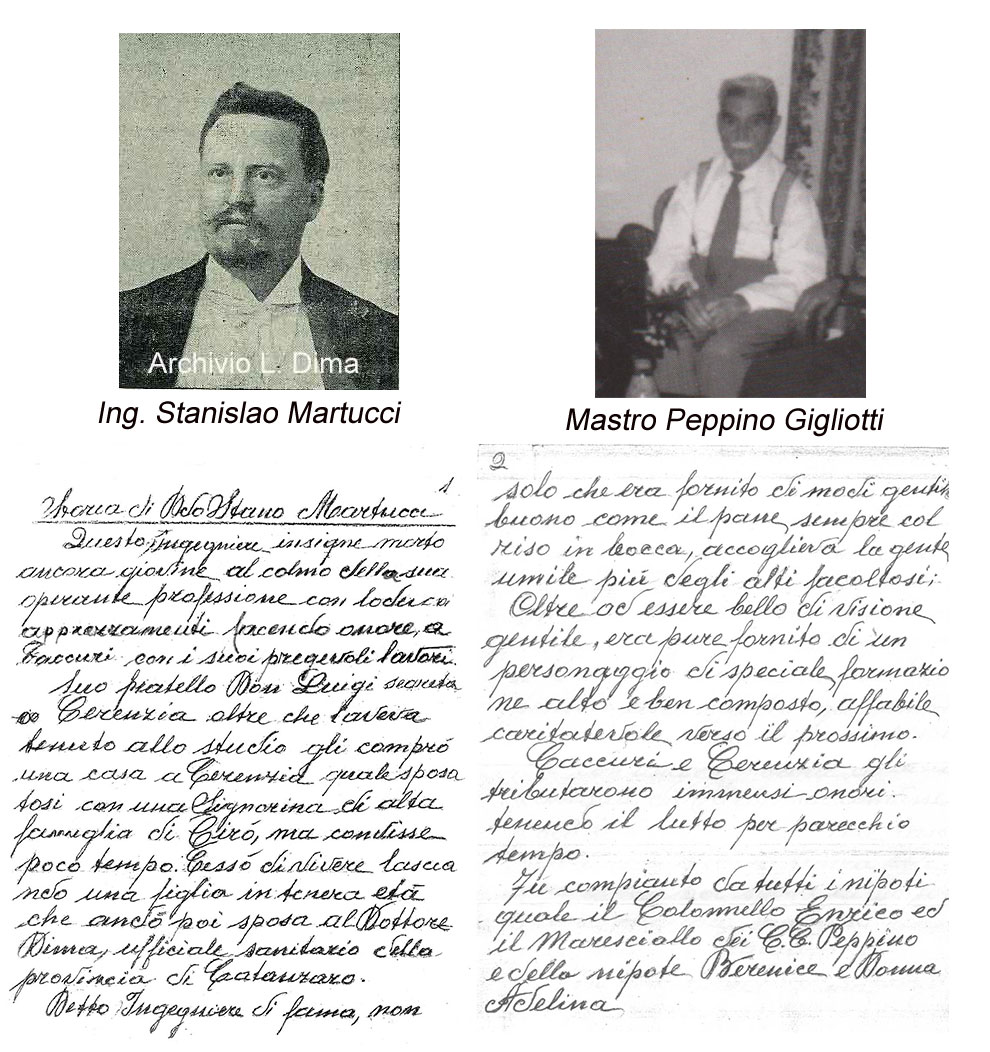 Archivio L. Dima
Ing. Stanislao Martucci
Mastro Peppino Gigliotti
1
Storia di Martucci
Questo Ingegniere insigne morto
ancora giovine al colmo della sua
operante professione con
apprezzamenti facendo onore, a
Caccuri con i suoi pregevoli lavori.
Suo fratello Don Luigi
Cerenzia oltre che l'aveva
tenuto allo studio gli compró
una casa a Cerenzia quale sposa
tosi con una Signorina di alta
famiglia di Ciró, ma
poco tempo. Cessó di vivere lascia
ndo una figlia in tenera etá
che andó poi sposa al Dottore
Dima, ufficiale sanitario della
provincia di Catanzaro.
Detto Ingegniere di fama, non
2
solo che era fornito di modi gentili
buono come il pane sempre col
riso in bocca, accoglieva la gente
umile piú degli alti facoltosi;
Oltre ad essere bello di visione
gentile, era pure fornito di un
personaggio di speciale formazio
ne alto e ben composto, affabile
caritatevole verso il prossimo.
Caccuri e Cerenzia gli
tributarono immensi onori
tenendo il lutto per parecchio
tempo.
Fu compianto da tutti i nipoti
quale il Colonnello Enrico ed
il Maresciallo dei C.C. Peppino
e della nipote Berenice e Donna
Adelina